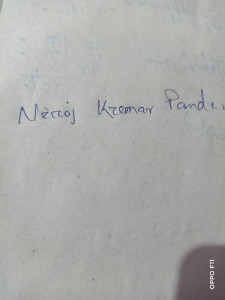 Neroj Kremar Pande
OPPO F11